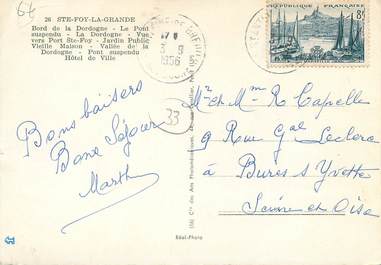 64
26 STE-FOY-LA-GRANDE
Bord de la Dordogne - Le Pont
suspendu - La Dordogne - Vue
vers Port Ste-Foy - Jardin Public
Vieille Maison - Vallée de la
Dordogne - Pont suspendu
Hôtel de Ville
3 - 9
1956
REPUBLIQUE FRANÇAISE
8F
MARSEILLE
33
Bons baisers
Bone Séjour
Marth
Mr et Mme R Capelle
9 Rue Gal Leclerc
à Bures s Yvette
Seine et Oise
Réal-Photo
33